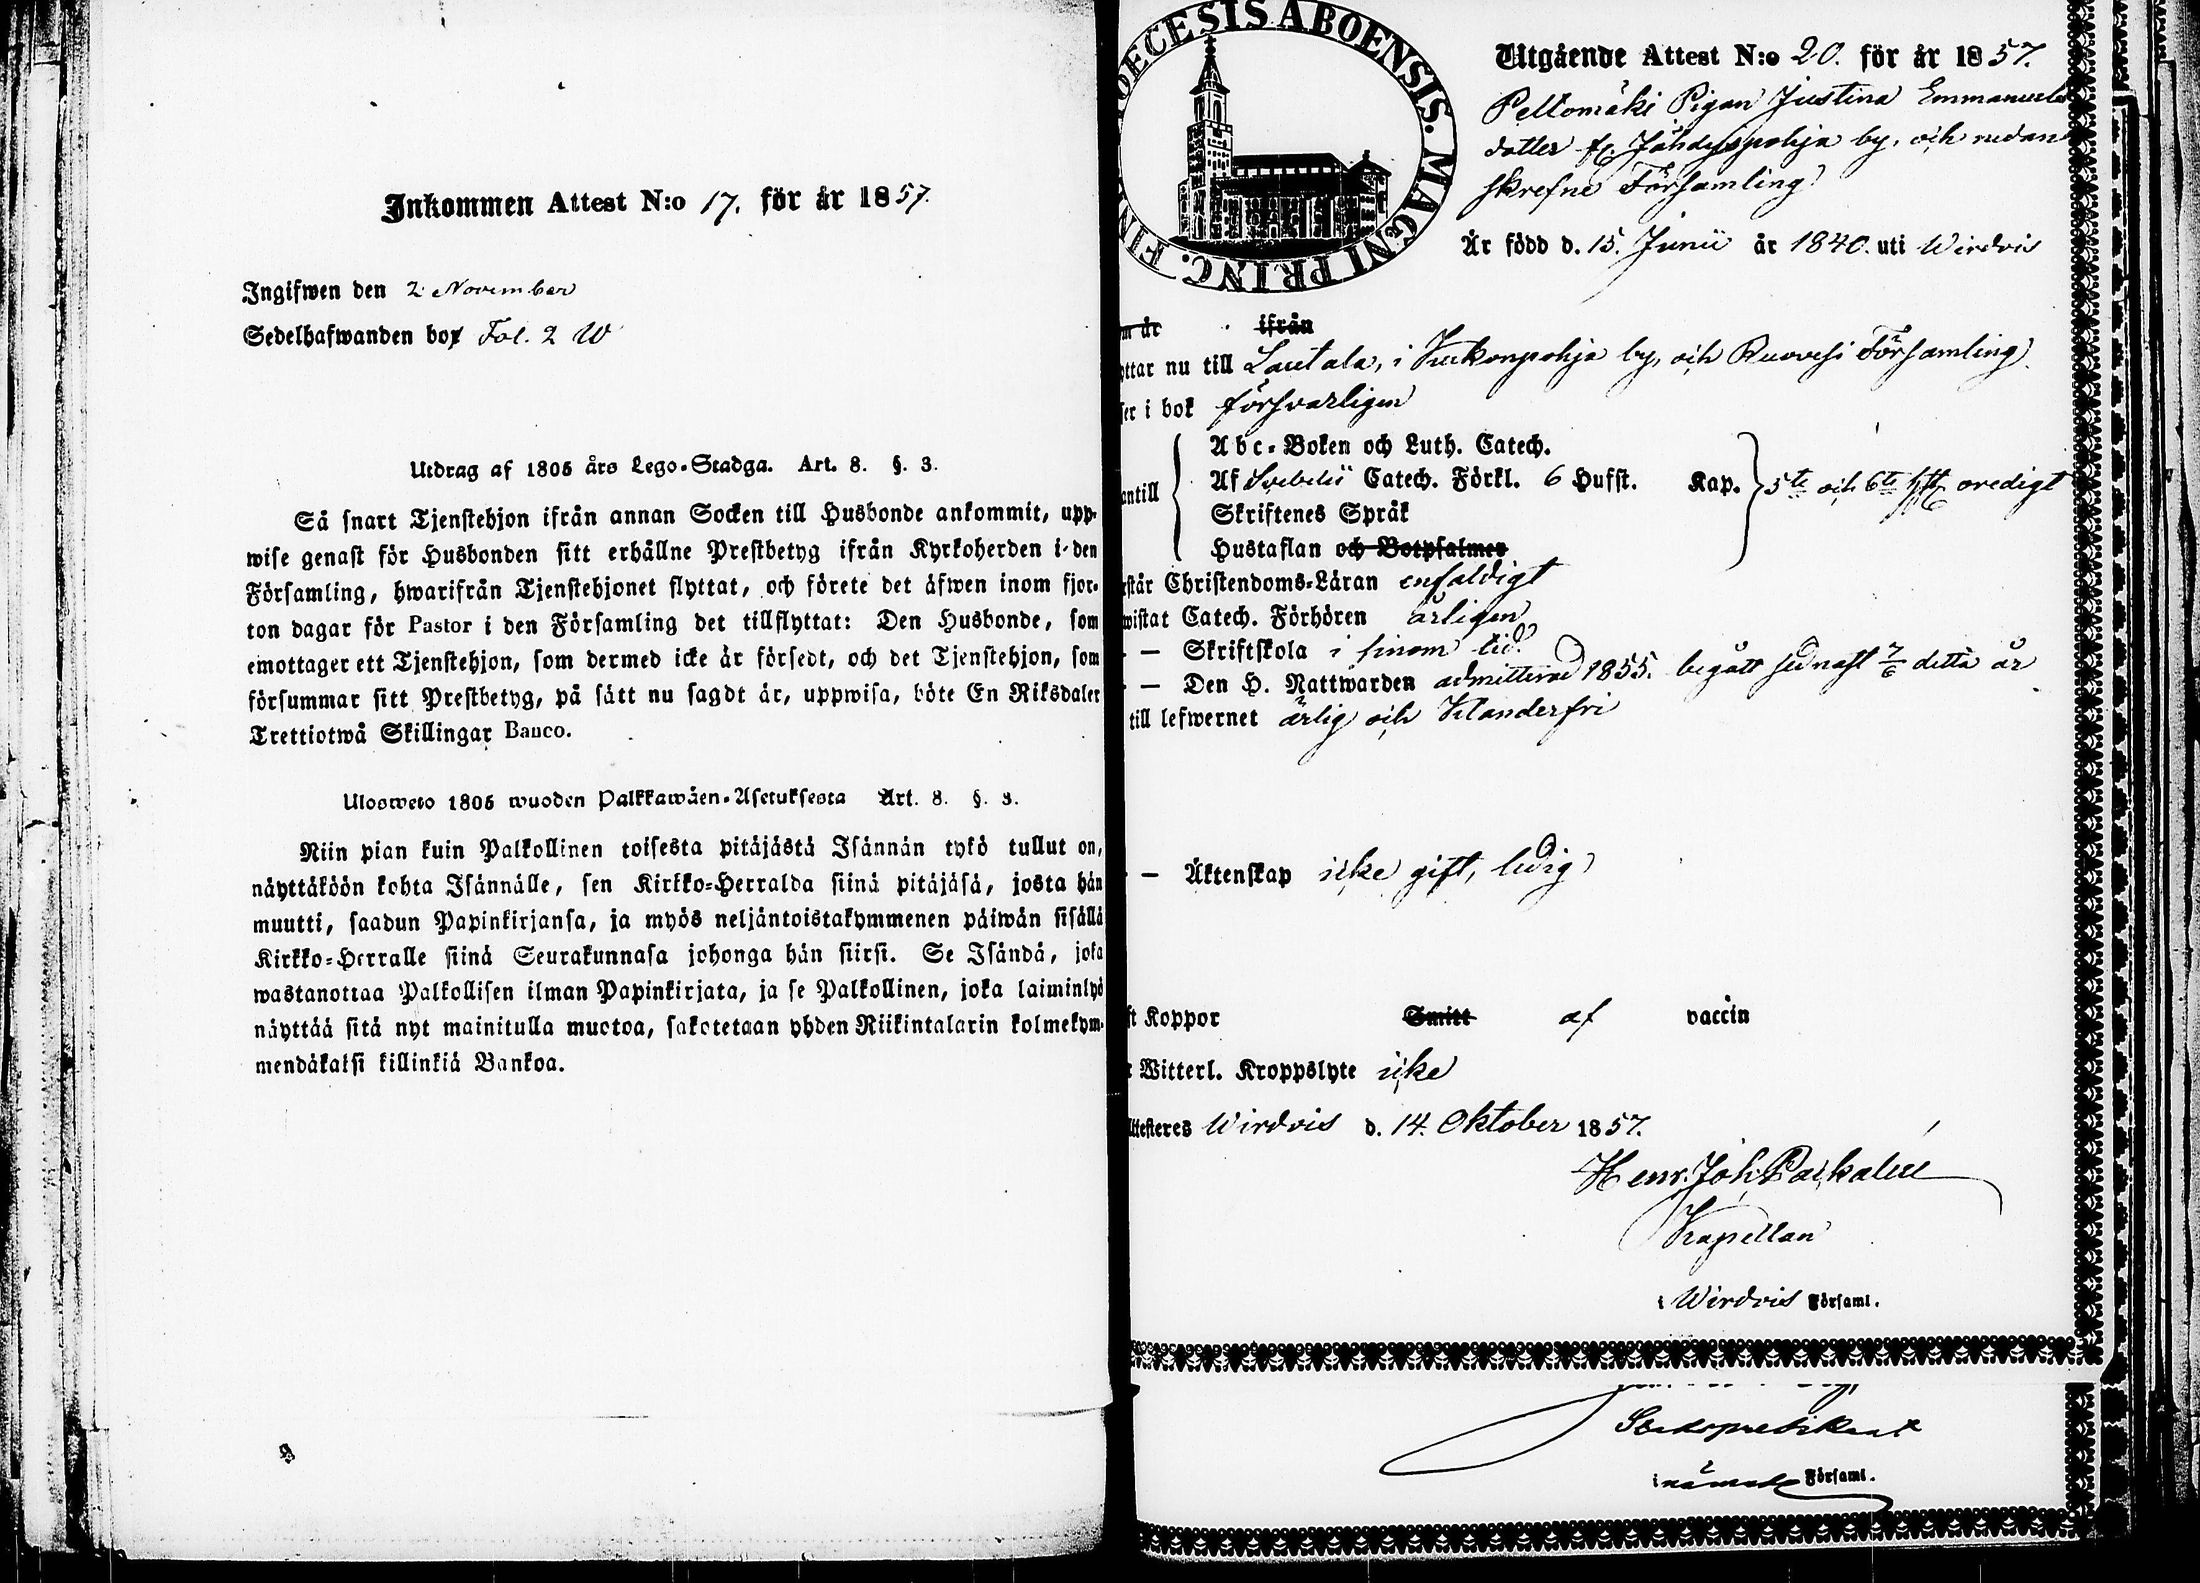 Inkommen Attest N:o 17. för år 1857.
Ingifwen den 2 November
Sedelhafwanden bor Fol. 2 W
Utdrag af 1805 års Lego-Stadga. Art. 8. §. 3.
Så snart Tjenstehjon ifrån annan Socken till Husbonde ankommit, upp-
wise genast för Husbonden sitt erhållne Prestbetyg ifrån Kyrkoherden i den
Församling, hwarifrån Tjenstehjonet flyttat, och förete det äfwen inom fjor-
ton dagar för Pastor i den Församling det tillflyttat: Den Husbonde, som
emottager ett Tjenstehjon, som dermed icke är försedt, och det Tjenstehjon, som
försummar sitt Prestbetyg, på sätt nu sagdt är, uppwisa, böte En Riksdaler
Trettiotwå Skillingar Banco.
Ulosweto 1805 wuoden Palkkawäen-Asetuksesta Art. 8. §. 3.
Niin pian kuin Palkollinen toisesta pitäjästä Isännän tykö tullut on,
näyttäköön kohta Isännälle, sen Kirkko-Herralda siinä pitäjäsä, josta hän
muutti, saadun Papinkirjansa, ja myös neljäntoistakymmenen päiwän sisällä
Kirkko-Herralle siinä Seurakunnasa johonga hän siirsi. Se Isändä, joka
wastanottaa Palkollisen ilman Papinkirjata, ja se Palkollinen, joka laiminlyö
näyttää sitä nyt mainitulla muotoa, sakotetaan yhden Riikintalarin kolmekym-
mendäkaksi killinkiä Bankoa.
DECESIS ABOENSIS. MAGNI PRINC. FIN
Utgående Attest N:o 20. för år 1857.
Peltomäki Pigan Justina Emmanuels
dotter fr. Jähdyspohja by, och nedan
skrefne Församling
Är född d. 15. Junii år 1840. uti Wirdois
m år ifrån
yttar nu till Lautala, i Kukonpohja by, och Ruovesi Församling
ser i bok försvarligen
Abc-Boken och Luth. Catech.
antill Af Svebelii Catech. Förkl. 6 Hufst. Kap. 5te och 6te hft oredigt
Skriftenes Språk
Hustaflan och Botpsalmer
står Christendoms-Läran enfaldigt
wistat Catech. Förhören årligen
— Skriftskola i sinom tid
— Den H. Nattwarden admitterad 1855. begått sednast 7/6 detta år
till lefwernet ärlig och klanderfri
— Äktenskap icke gift, ledig
ft Koppor Smitt af vaccin
r Witterl. Kroppslyte icke
Attesteres Wirdois d. 14. Oktober 1857.
Henr. Joh.
Kapellan
i Wirdois Församl.
Församl.